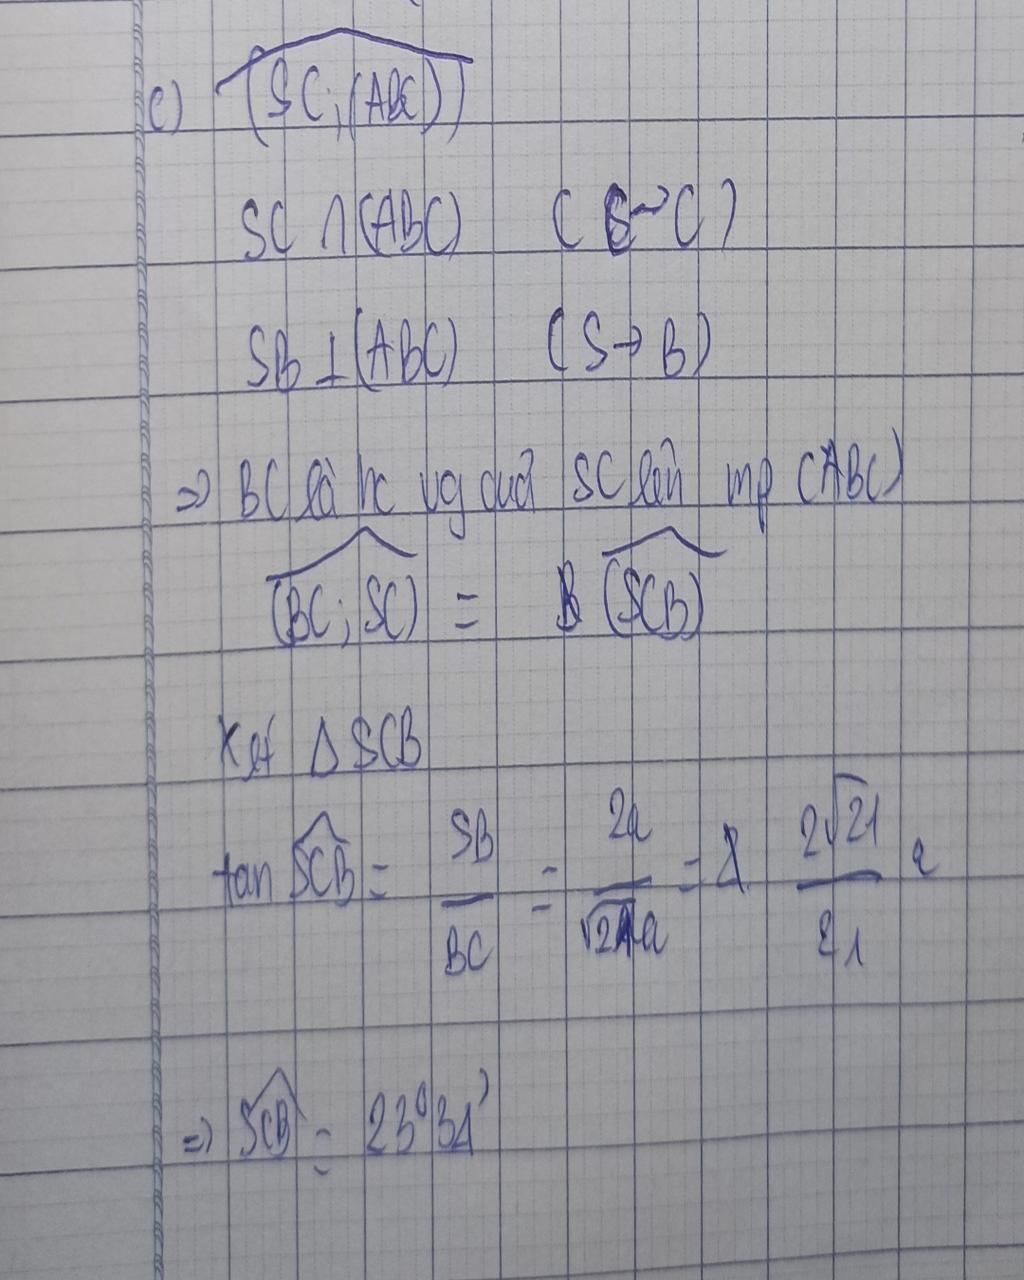 c) (SC; (ABC))
SC ∩ (ABC) (S ~ C)
SB ⊥ (ABC) (S → B)
=> BC là hc vg của SC lên mp (ABC)
(BC; SC) = (SCB)
Xét Δ SCB
tan SCB = SB/BC = 2a/√21a = 2√21/21
=> SCB = 23°34'